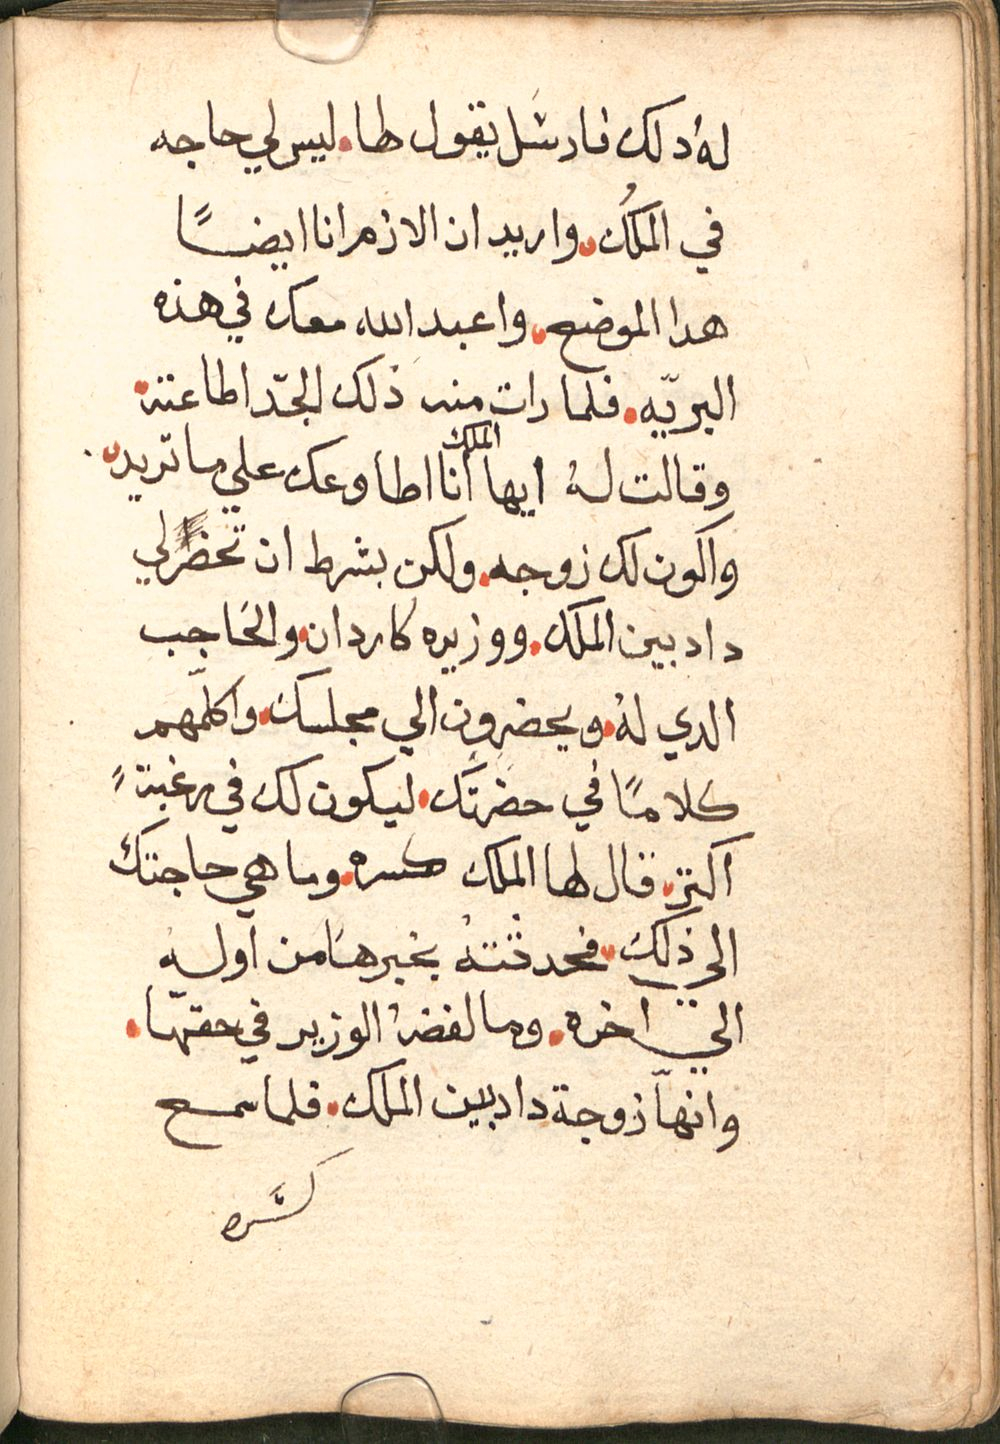 لهُ دلك فارسَل يقول لها. ليس لي حاجه
في الملكُ. واريد ان الازم انا ايضًا
هدا الموضع. واعبد الله معك في هذه
البريّه. فلما رات منه ذلك الجدّ اطاعته.
وقالت لهُ ايها الملك انا اطاوعك علي ما تريد.
واكون لك زوجه. ولكن بشرط ان تحضر لي
دادبين الملك. ووزيره كاردان. والحَاجب
الدي لهُ. ويحضرون الي مجلسك. واكلّمهم
كلامًا في حضرتَك. ليكون لك في رغبةً
اكتر. قال لها الملك كسره. وما هي حاجتك
الي ذلك. فحدثتهُ بخبرهَا من اوله
الي اخره. وما لفضهُ الوزير في حقّها.
وانهّا زوجة دادبين الملك. فلما سمع
كسَره